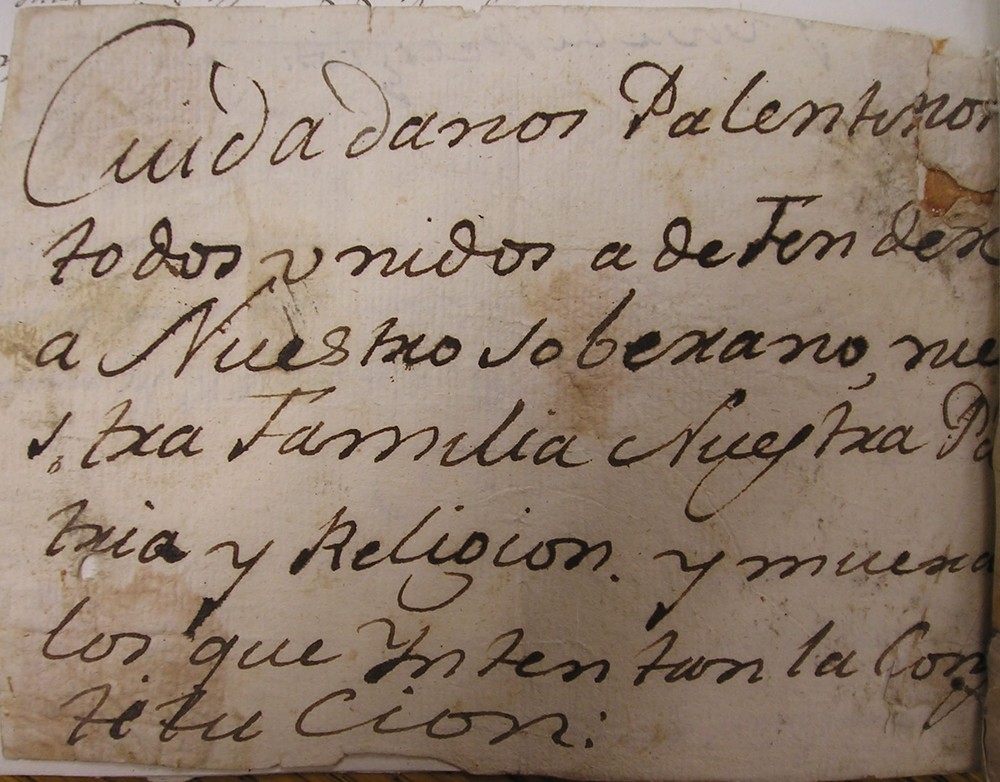 Cuidadanos Palentinos
todos vnidos a defender
a Nuestro soberano, nue
stra Familia Nuestra Pa
tria y Religion. y muera
los que Yntentan la Cons
titucion: